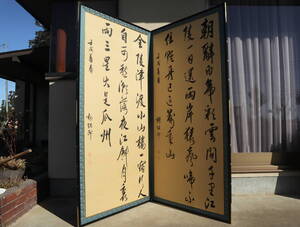 朝辭白帝彩雲間千里江
陵一日還兩岸猿聲啼不
住輕舟已過萬重山
金陵津渡小山樓一宿行人
自可愁潮落夜江斜月裏
兩三星火是瓜州